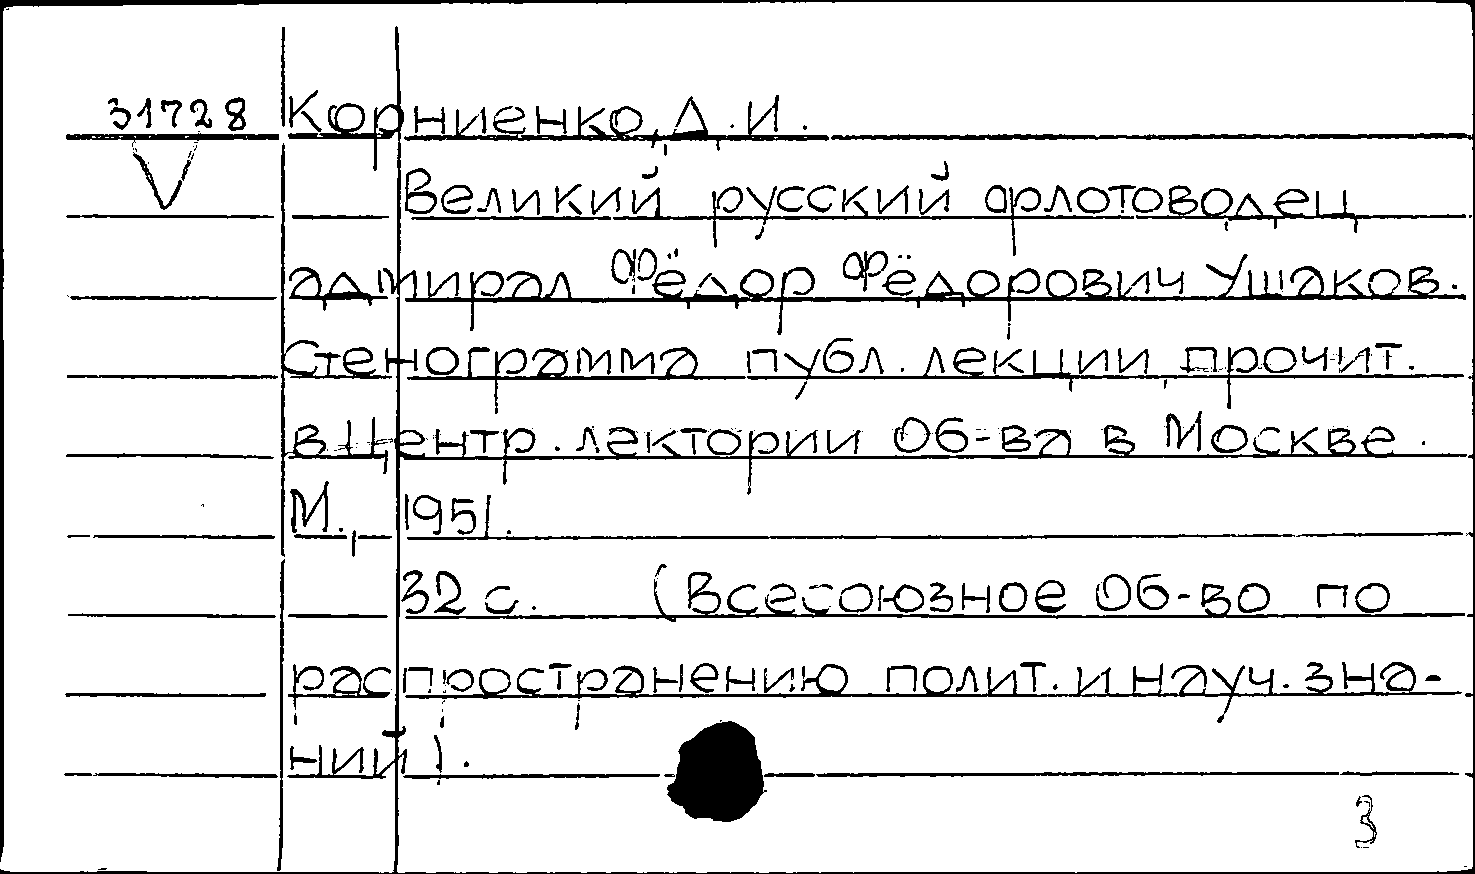 31728 Корниенко, Д.И.
V Великий русский флотоводец
адмирал Фёдор Фёдорович Ушаков.
Стенограмма публ. лекции, прочит.
в Центр. лектории Об-ва в Москве.
М., 1951.
32 с. (Всесоюзное Об-во по
распространению полит. и науч. зна-
ний).
3